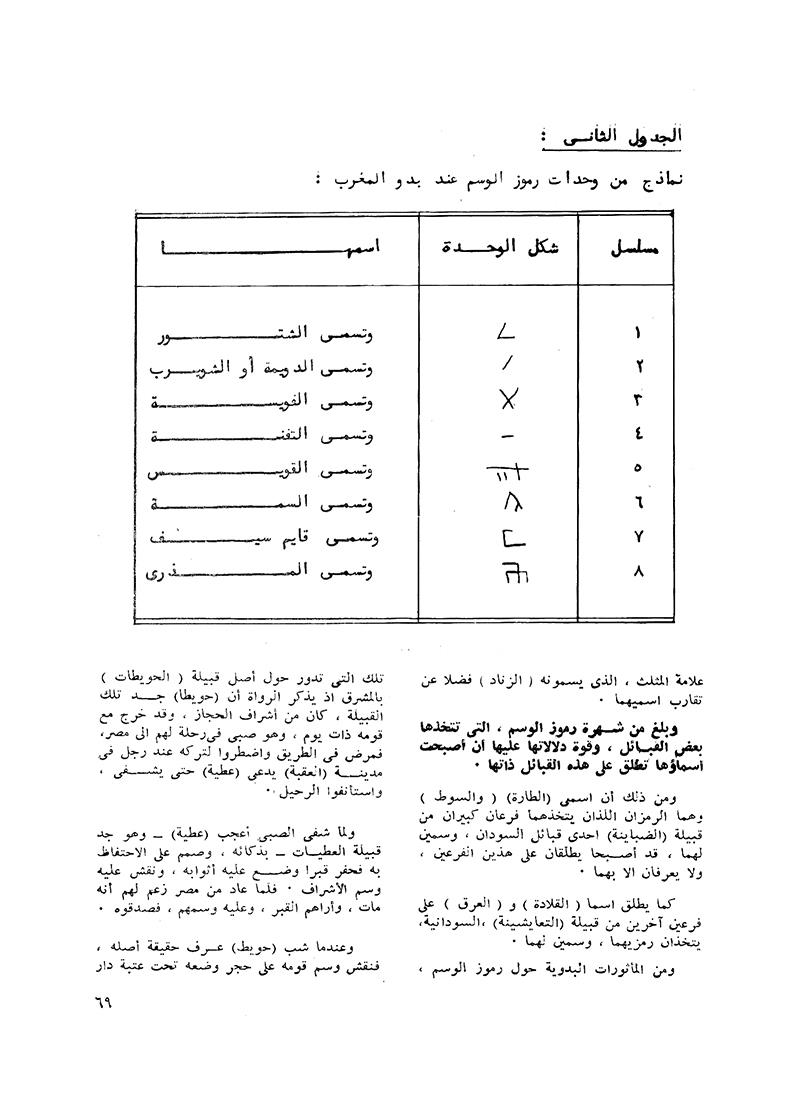 الجدول الثانى :
نماذج من وحدات رموز الوسم عند بدو المغرب :
مسلسل شكل الوحدة اسمها
١ وتسمى الشتور
٢ وتسمى الدويمة أو الشويرب
٣ وتسمى الفويسة
٤ وتسمى التفنة
٥ وتسمى القويس
٦ وتسمى السمة
٧ وتسمى قايم سيف
٨ وتسمى المذرى
علامة المثلث ، الذى يسمونه ( الزناد ) فضلا عن
تقارب اسميهما ٠
وبلغ من شهرة رموز الوسم ، التى تتخذها
بعض القبائل ، وقوة دلالاتها عليها أن أصبحت
أسماؤها تطلق على هذه القبائل ذاتها ٠
ومن ذلك أن اسمى (الطارة) ( والسوط )
وهما الرمزان اللذان يتخذهما فرعان كبيران من
قبيلة (الضباينة) احدى قبائل السودان ، وسمين
لهما ، قد أصبحا يطلقان على هذين الفرعين ،
ولا يعرفان الا بهما ٠
كما يطلق اسما ( القلادة ) و ( العرق ) على
فرعين آخرين من قبيلة (التعايشينة) ،السودانية،
يتخذان رمزيهما ، وسمين لهما ٠
ومن المأثورات البدوية حول رموز الوسم ،
تلك التى تدور حول أصل قبيلة ( الحويطات )
بالمشرق اذ يذكر الرواة أن (حويطا) جد تلك
القبيلة ، كان من أشراف الحجاز ، وقد خرج مع
قومه ذات يوم ، وهو صبى فى رحلة لهم الى مصر،
فمرض فى الطريق واضطروا لتركه عند رجل فى
مدينة (العقبة) يدعى (عطية) حتى يشفى ،
واستأنفوا الرحيل ٠
ولما شفى الصبى أعجب (عطية) ــ وهو جد
قبيلة العطيات ــ بذكائه ، وصمم على الاحتفاظ
به فحفر قبرا وضع عليه أثوابه ، ونقش عليه
وسم الأشراف ٠ فلما عاد من مصر زعم لهم أنه
مات ، وأراهم القبر ، وعليه وسمهم ، فصدقوه ٠
وعندما شب (حويط) عرف حقيقة أصله ،
فنقش وسم قومه على حجر وضعه تحت عتبة دار
٦٩